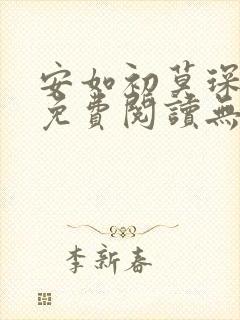 安如初莫琛
免費閱讀無
李新春